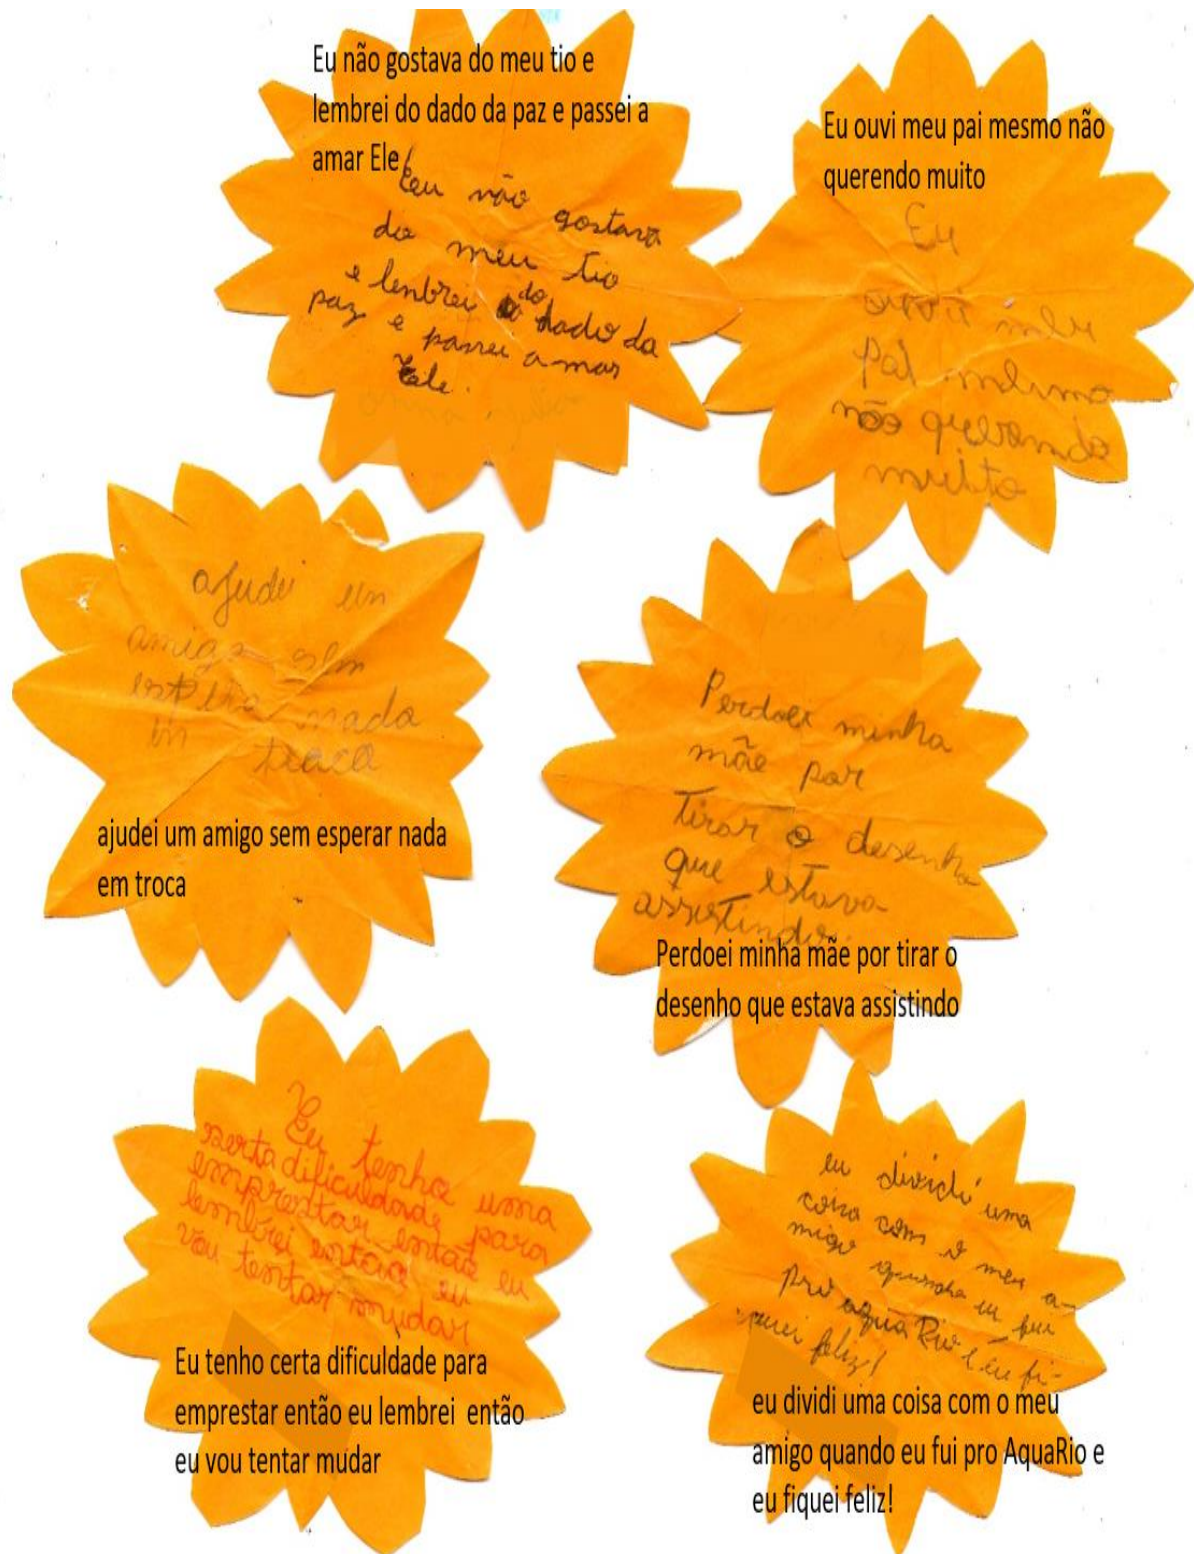 Eu não gostava do meu tio e
lembrei do dado da paz e passei a
amar Ele
Eu não gostava
do meu tio
e lenbrei do dado da
paz e passei a mar
Ele.
Eu ouvi meu pai mesmo não
querendo muito
Eu
ouvi meu
pai mesmo
não querendo
muito
ajudei um
amigo sem
espera nada
en troca
ajudei um amigo sem esperar nada
em troca
Perdoei minha
mãe por
Tirar o desenho
que estava
assistindo.
Perdoei minha mãe por tirar o
desenho que estava assistindo
Eu tenho uma
serta dificuldade para
emprestar então eu
lembrei então eu
vou tentar mudar
Eu tenho certa dificuldade para
emprestar então eu lembrei então
eu vou tentar mudar
eu dividi uma
coisa com o meu a-
migo eu fui
pro aqua Rio e eu fi-
quei feliz!
eu dividi uma coisa com o meu
amigo quando eu fui pro AquaRio e
eu fiquei feliz!